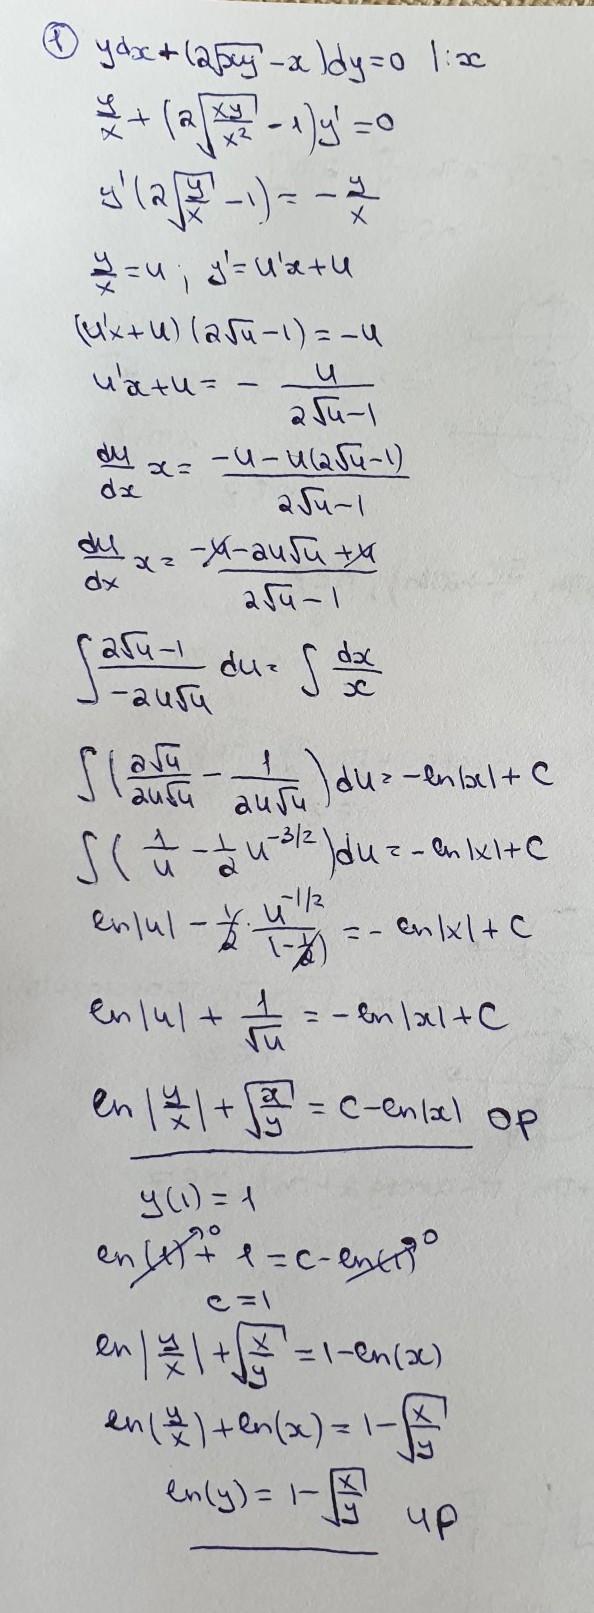 ① ydx+(2√xy -x)dy=0 |:x
y/x + (2√(xy/x²) -1)y'=0
y'(2√(y/x) -1) = - y/x
y/x = u ; y'=u'x+u
(u'x+u)(2√u-1)=-u
u'x+u= - u/(2√u-1)
du/dx x = (-u-u(2√u-1))/(2√u-1)
du/dx x = (-u-2u√u+u)/(2√u-1)
∫ (2√u-1)/(-2u√u) du = ∫ dx/x
∫ (2√u/(2u√u) - 1/(2u√u)) du = -ln|x|+C
∫ (1/u - 1/2 u^(-3/2)) du = -ln|x|+C
ln|u| - 1/2 · u^(-1/2)/(-1/2) = - ln|x|+C
ln|u| + 1/√u = -ln|x|+C
ln|y/x| + √(x/y) = C-ln|x| OP
y(1)=1
ln(1)→0 + 1 = C-ln(1)→0
c=1
ln|y/x| + √(x/y) = 1-ln(x)
ln(y/x)+ln(x) = 1-√(x/y)
ln(y) = 1-√(x/y) ЧР